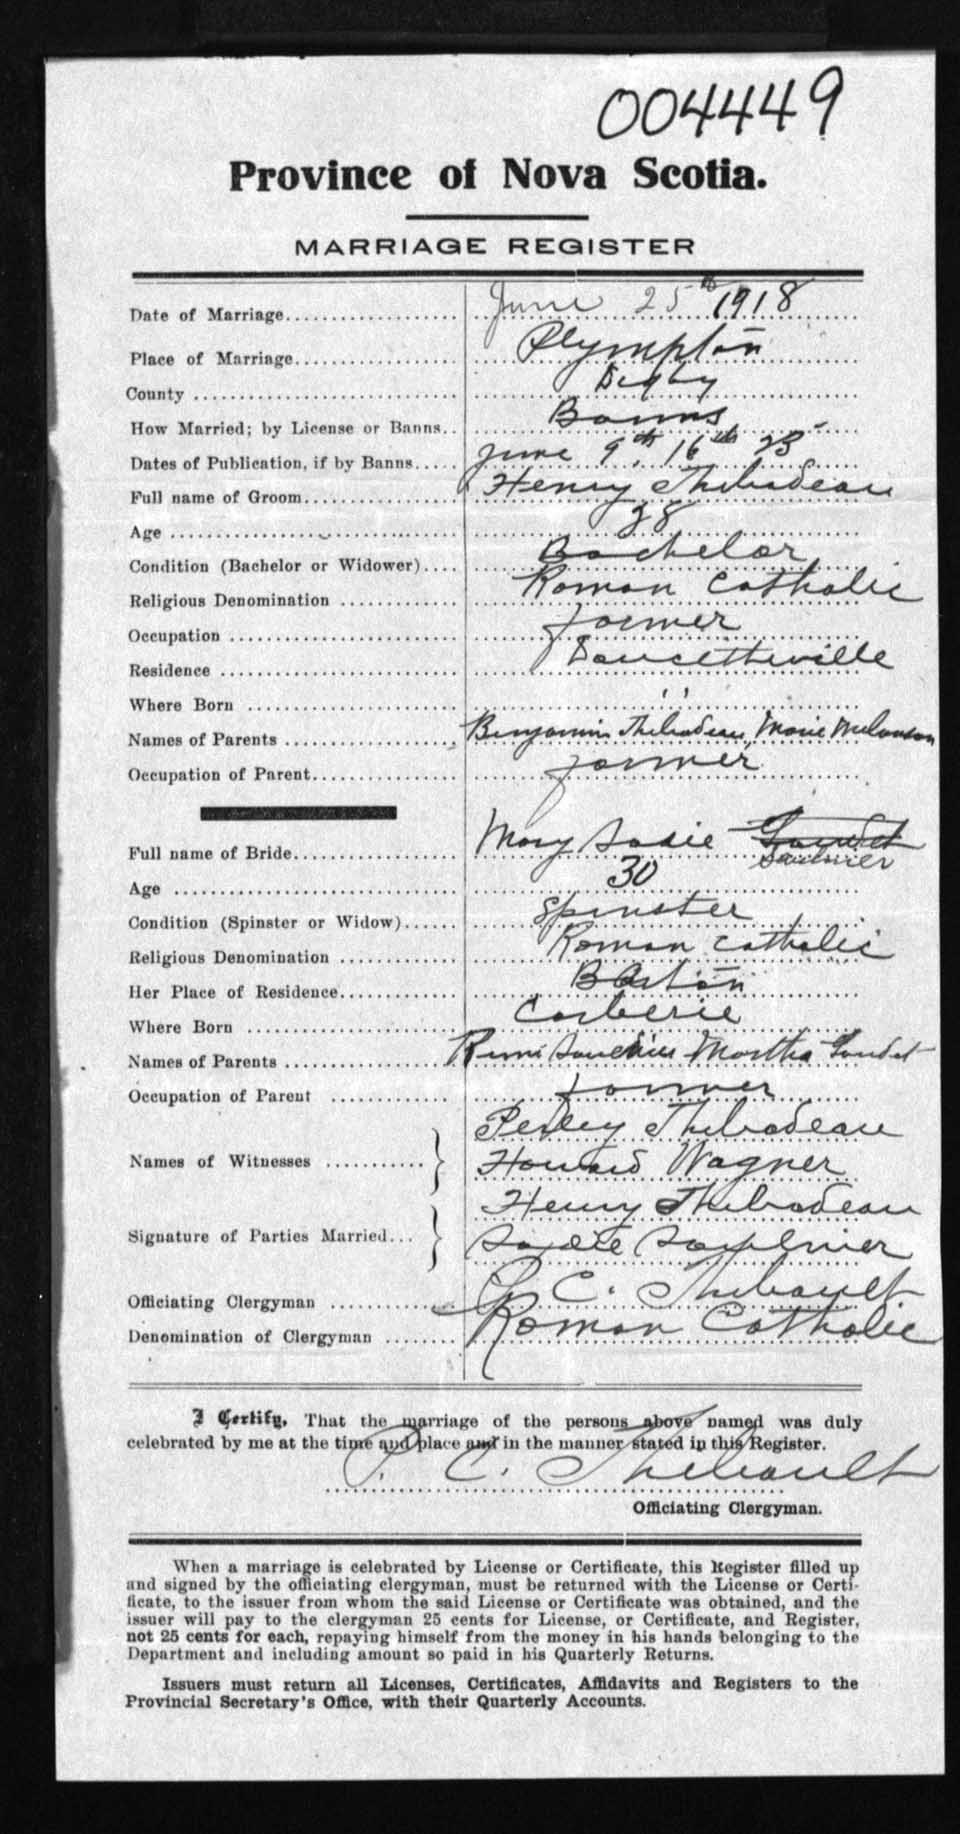 004449
Province of Nova Scotia.
MARRIAGE REGISTER
Date of Marriage June 25th 1918
Place of Marriage Plympton
County Digby
How Married; by License or Banns Banns
Dates of Publication, if by Banns June 9th, 16th 23
Full name of Groom Henry Thibodeau
Age 38
Condition (Bachelor or Widower) Bachelor
Religious Denomination Roman Catholic
Occupation farmer
Residence Doucetteville
Where Born " "
Names of Parents Benjamin Thibodeau, Marie Melanson
Occupation of Parent farmer
Full name of Bride Mary Sadie Gaudet
Saulnier
Age 30
Condition (Spinster or Widow) Spinster
Religious Denomination Roman Catholic
Her Place of Residence Barton
Where Born Corberie
Names of Parents Remi Saulnier Martha Gaudet
Occupation of Parent farmer
Names of Witnesses } Perley Thibodeau
Howard Wagner
Signature of Parties Married } Henry Thibodeau
Sadie Saulnier
Officiating Clergyman P. C. Thibault
Denomination of Clergyman Roman Catholic
I Certify, That the marriage of the persons above named was duly
celebrated by me at the time and place and in the manner stated in this Register.
P. C. Thibault
Officiating Clergyman.
When a marriage is celebrated by License or Certificate, this Register filled up
and signed by the officiating clergyman, must be returned with the License or Certi-
ficate, to the issuer from whom the said License or Certificate was obtained, and the
issuer will pay to the clergyman 25 cents for License, or Certificate, and Register,
not 25 cents for each, repaying himself from the money in his hands belonging to the
Department and including amount so paid in his Quarterly Returns.
Issuers must return all Licenses, Certificates, Affidavits and Registers to the
Provincial Secretary's Office, with their Quarterly Accounts.